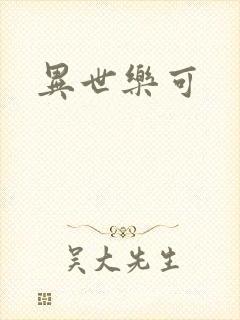 異世樂可
吴大先生